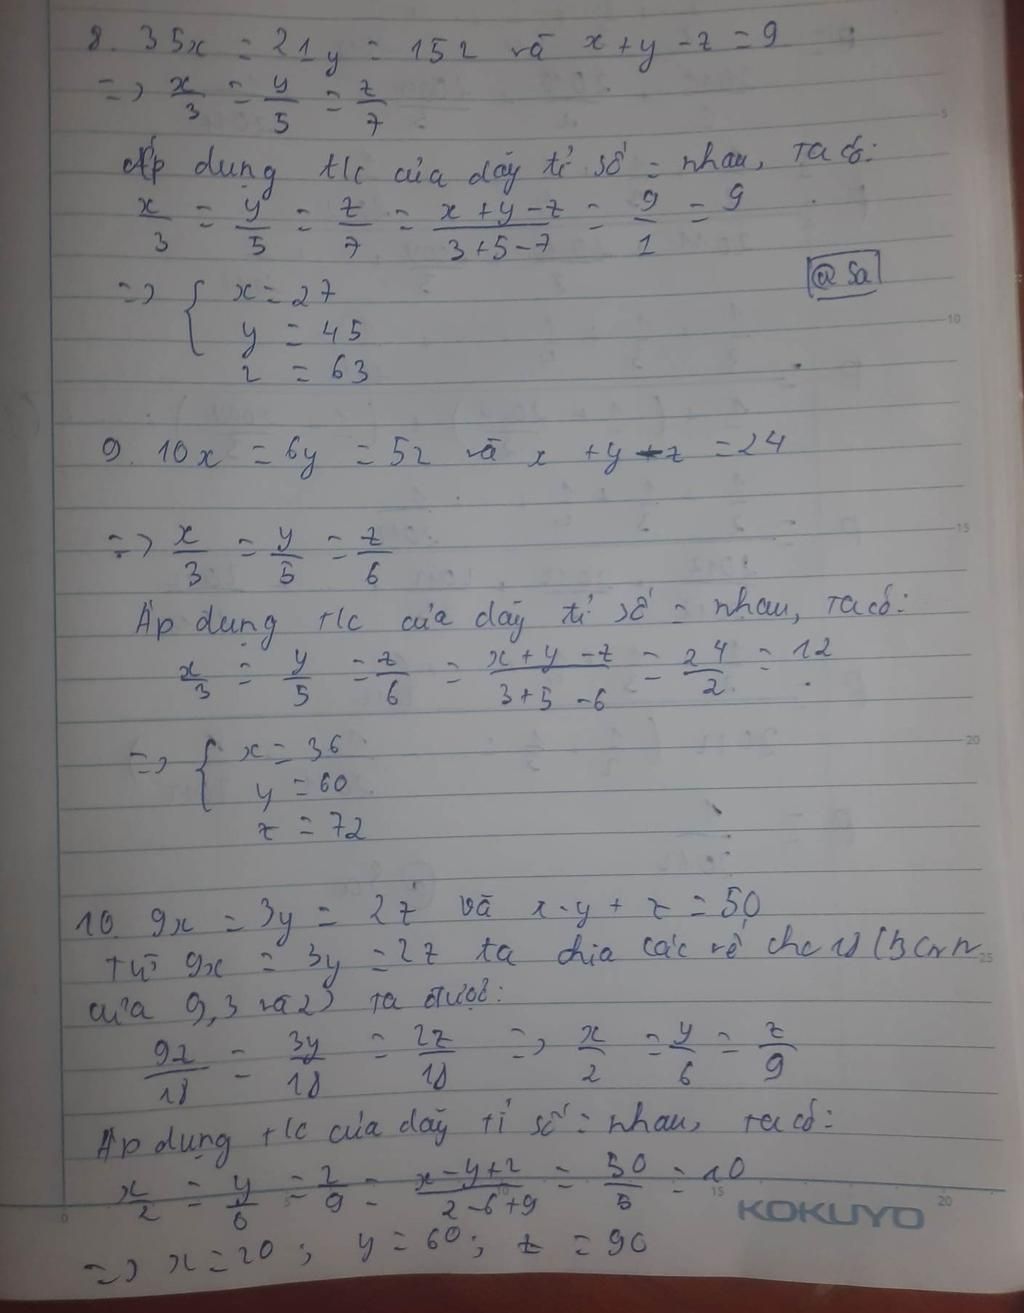 8. 35x = 21y = 15z và x+y-z = 9
=> x/3 = y/5 = z/7
Áp dụng t/c của dãy tỉ số = nhau, ta có:
x/3 = y/5 = z/7 = (x+y-z)/(3+5-7) = 9/1 = 9
@Sa
=> { x = 27
y = 45
z = 63
9. 10x = 6y = 5z và x + y - z = 24
=> x/3 = y/5 = z/6
Áp dụng t/c của dãy tỉ số = nhau, ta có:
x/3 = y/5 = z/6 = (x+y-z)/(3+5-6) = 24/2 = 12
=> { x = 36
y = 60
z = 72
10. 9x = 3y = 2z và x - y + z = 50
Từ 9x = 3y = 2z ta chia các vế cho 18 (BCNN
của 9, 3 và 2) ta được:
9x/18 = 3y/18 = 2z/18 => x/2 = y/6 = z/9
Áp dụng t/c của dãy tỉ số = nhau, ta có:
x/2 = y/6 = z/9 = (x-y+z)/(2-6+9) = 50/5 = 10
=> x = 20 ; y = 60 ; z = 90
KOKUYO
5
10
15
20
25
0
5
10
15
20